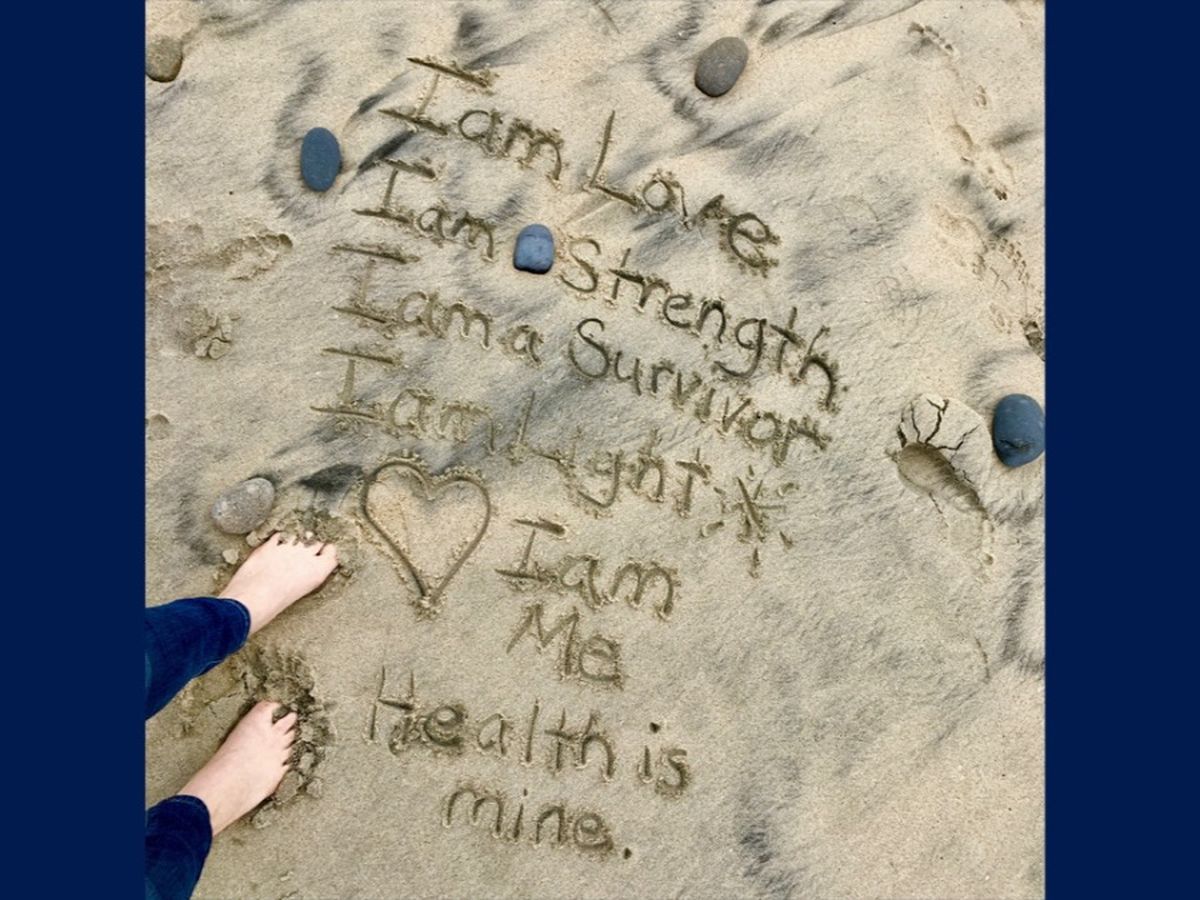 I am Love
I am Strength
I am a Survivor
I am Light
I am
Me
Health is
mine.